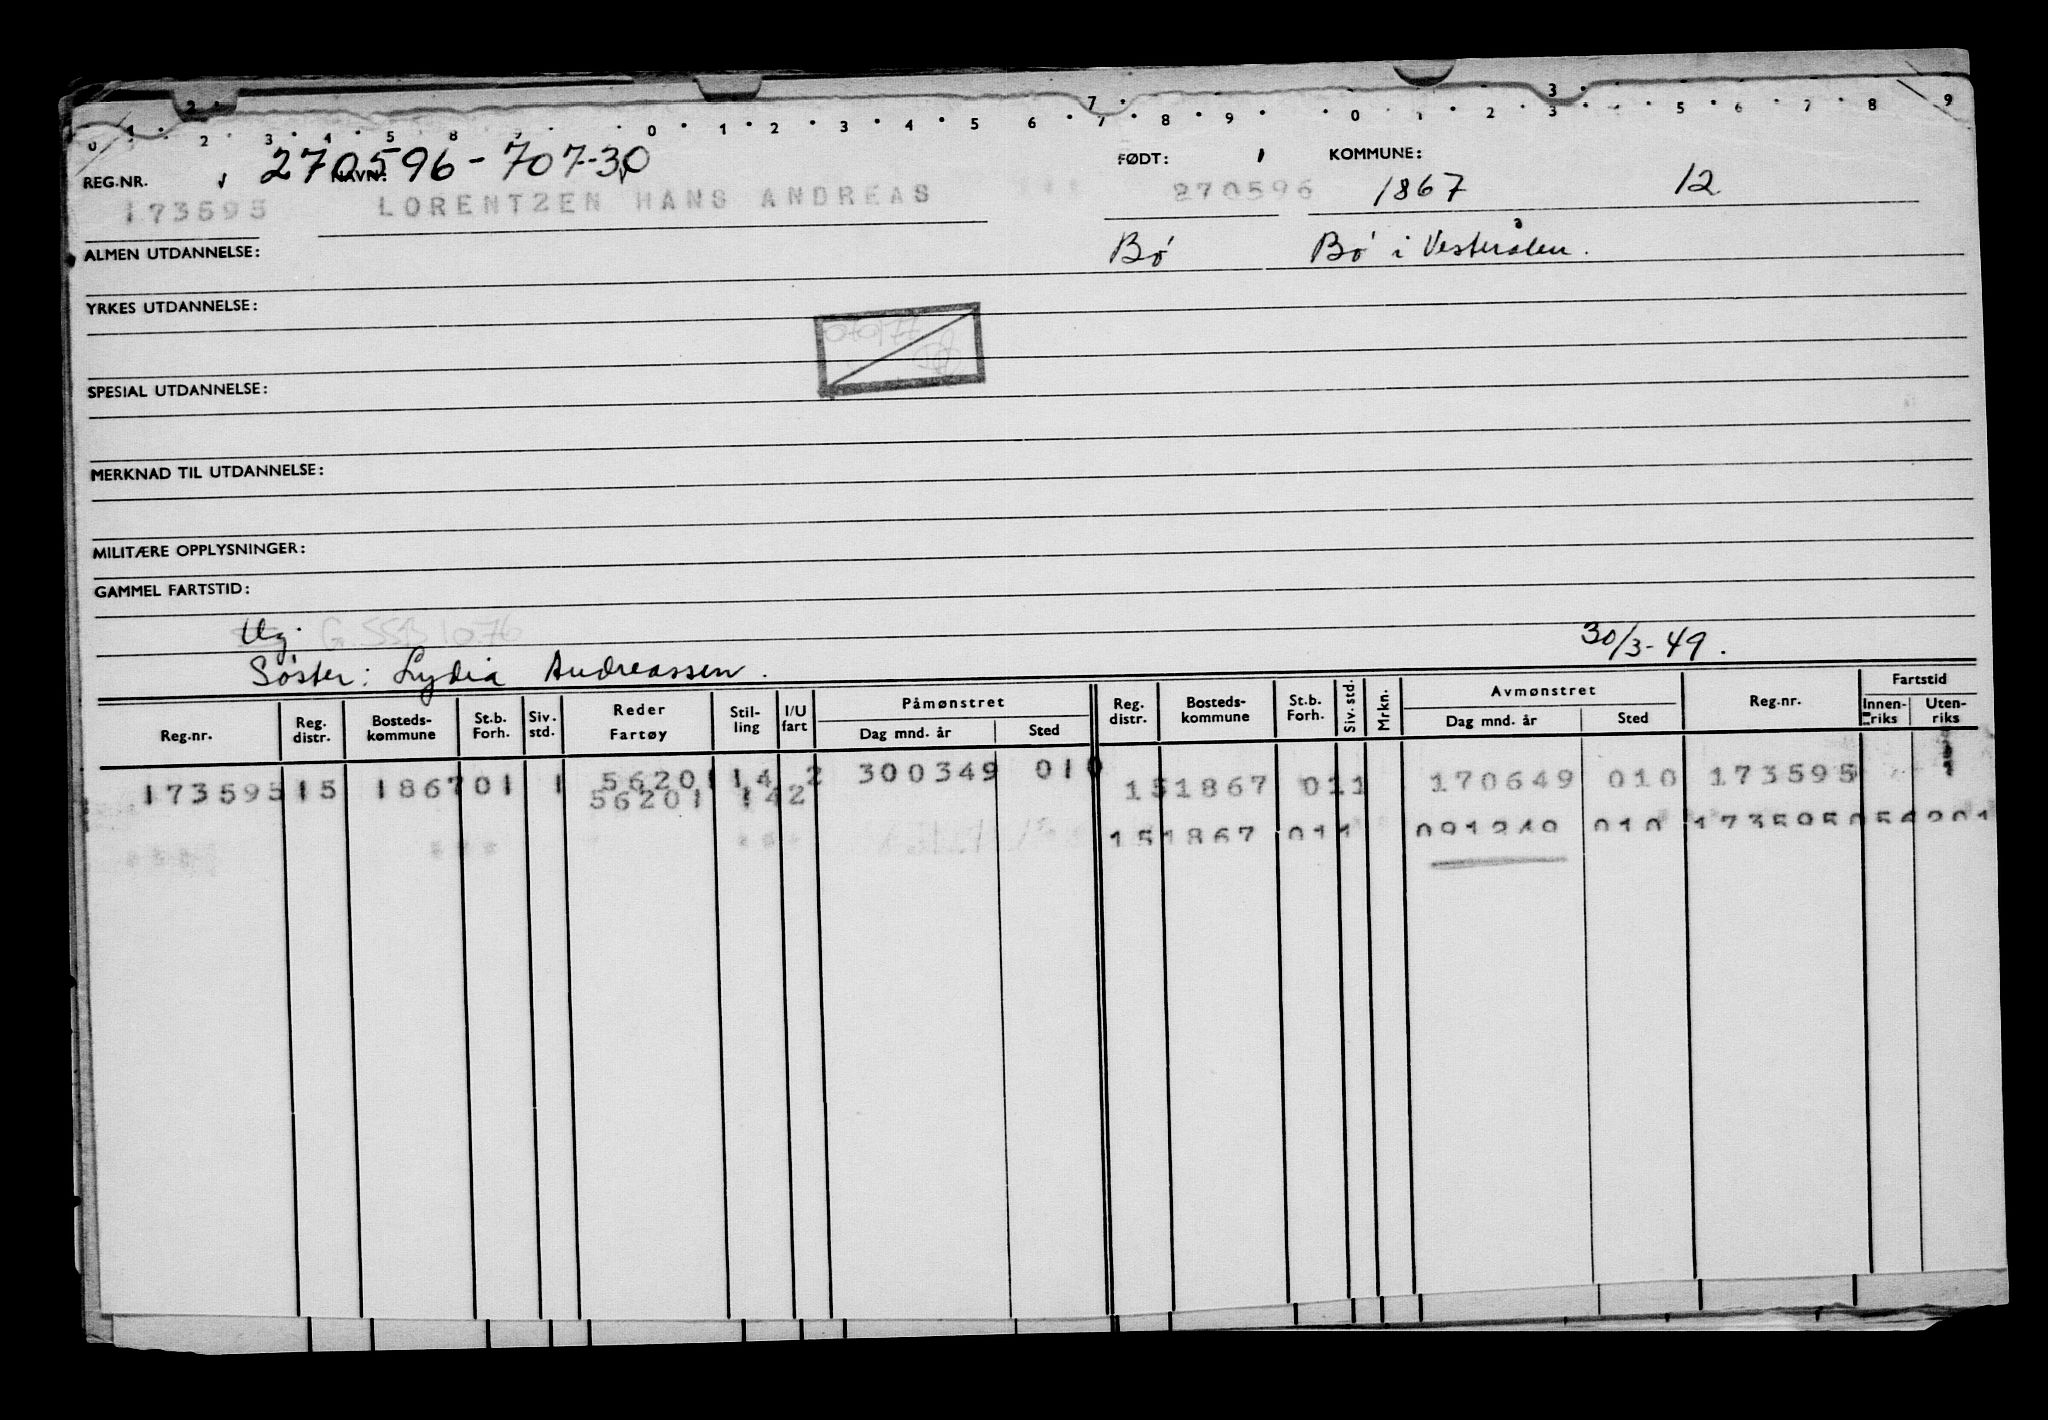 7 3
1 2 3 4 5 8 9 0 1 2 3 4 5 6 7 8 9 0 1 2 3 5 6 7 8 9
270596-707-30
REG.NR. NAVN: FØDT: KOMMUNE:
173595 LORENTZEN HANS ANDREAS 270596 1867 12
ALMEN UTDANNELSE: Bø Bø i Vesterålen.
YRKES UTDANNELSE:
SPESIAL UTDANNELSE:
MERKNAD TIL UTDANNELSE:
MILITÆRE OPPLYSNINGER:
GAMMEL FARTSTID:
Ug. 30/3-49.
Søster: Lydia Andreassen.
Reg.nr. Reg. distr. Bosteds-kommune St.b. Forh. Siv. std. Reder Fartøy Stil-ling I/U fart Påmønstret Dag mnd. år Sted Reg. distr. Bosteds-kommune St.b. Forh. Siv. std. Mrkn. Avmønstret Dag mnd. år Sted Reg.nr. Fartstid Innen-riks Uten-riks
173595 15 1867 01 1 56201 14 2 300349 010 15 1867 01 1 170649 010 173595
56201 14 2
15 1867 01 1 091249 010 173595